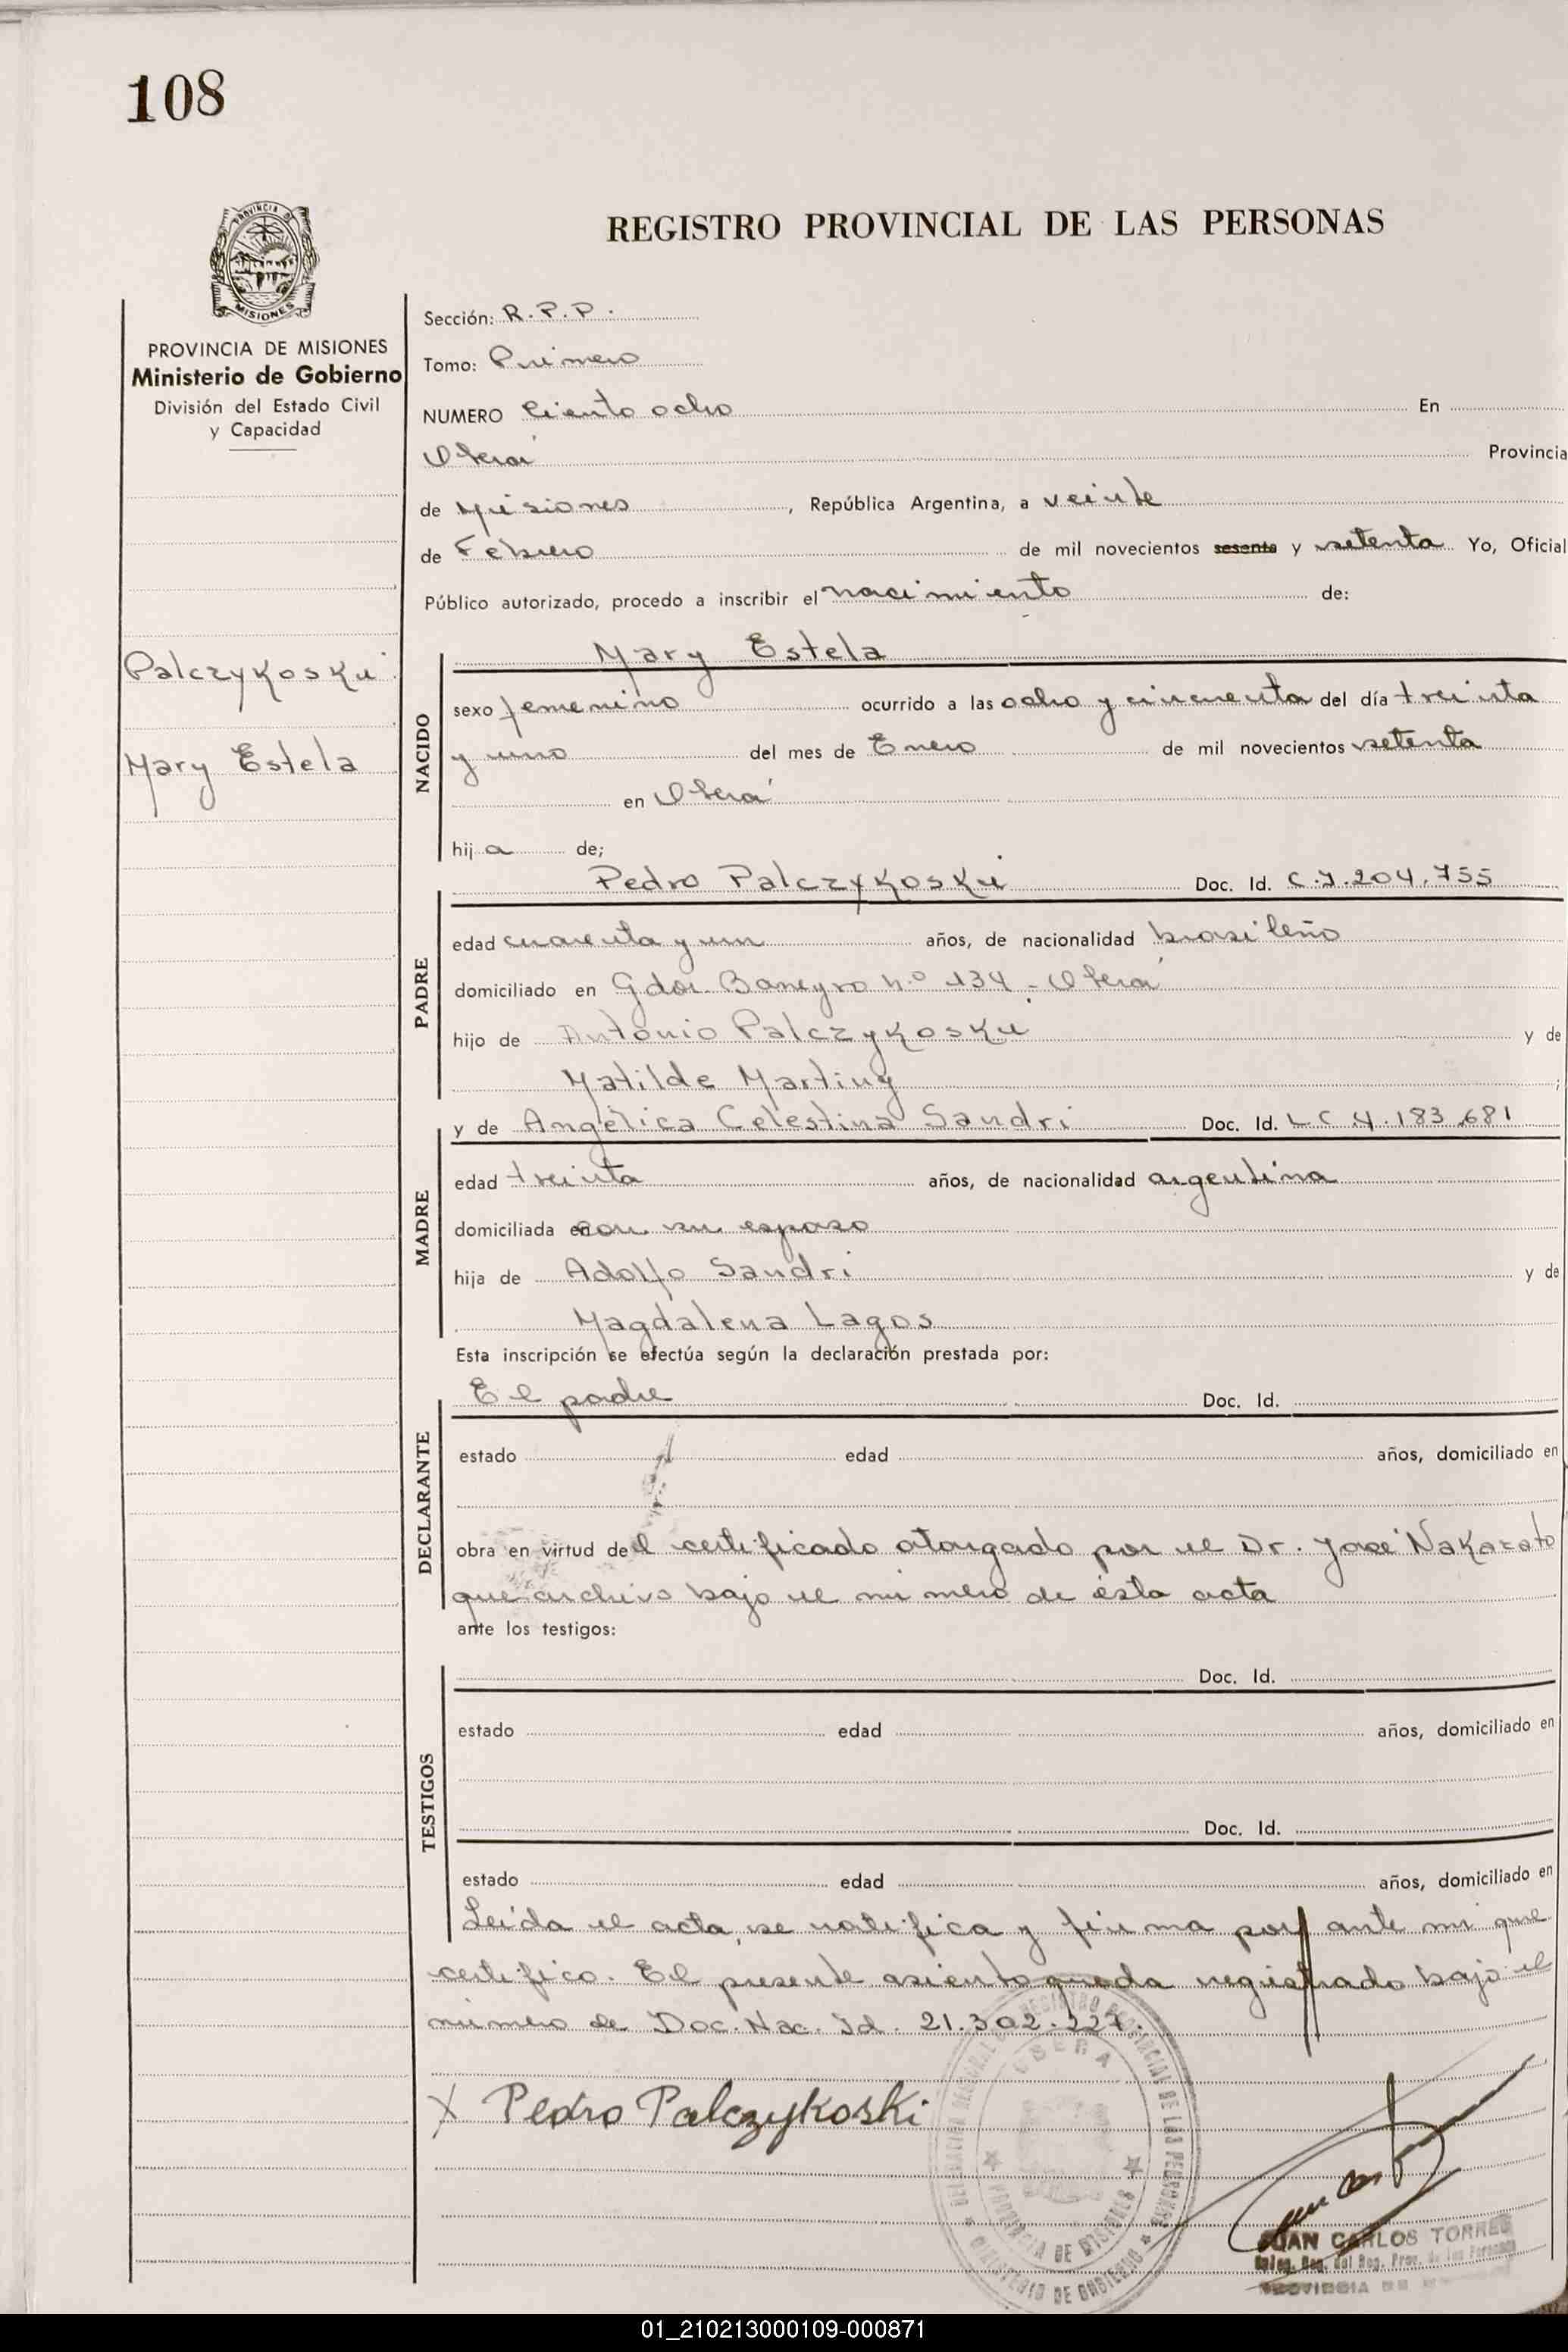 108
PROVINCIA DE
MISIONES
REGISTRO PROVINCIAL DE LAS PERSONAS
PROVINCIA DE MISIONES
Ministerio de Gobierno
División del Estado Civil
y Capacidad
Palczykoski
Mary Estela
Sección: R.P.P.
Tomo: Primero
NUMERO Ciento ocho En
Oberá Provincia
de Misiones, República Argentina, a veinte
de Febrero de mil novecientos sesenta y setenta Yo, Oficial
Público autorizado, procedo a inscribir el nacimiento de:
NACIDO
Mary Estela
sexo femenino ocurrido a las ocho y cincuenta del día treinta
y uno del mes de Enero de mil novecientos setenta
en Oberá
hija de;
PADRE
Pedro Palczykoski Doc. Id. C.I. 204.755
edad cuarenta y un años, de nacionalidad brasileño
domiciliado en Gdor. Bareyro n.º 134 - Oberá
hijo de Antonio Palczykoski y de
Matilde Martiny ;
MADRE
y de Angélica Celestina Sandri Doc. Id. L C 4.183.681
edad treinta años, de nacionalidad argentina
domiciliada en con su esposo
hija de Adolfo Sandri y de
Magdalena Lagos
Esta inscripción se efectúa según la declaración prestada por:
DECLARANTE
El padre Doc. Id.
estado edad años, domiciliado en
obra en virtud del certificado otorgado por el Dr. José Nakazato
que archivo bajo el número de ésta acta
ante los testigos:
TESTIGOS
Doc. Id.
estado edad años, domiciliado en
Doc. Id.
estado edad años, domiciliado en
Leída el acta, se ratifica y firma por ante mi que
certifico. El presente asiento queda registrado bajo el
número de Doc. Nac. Id. 21.302.227.
X Pedro Palczykoski
DELEGACION REGIONAL REGISTRO PROVINCIAL DE LAS PERSONAS
OBERA
PROVINCIA DE MISIONES
MINISTERIO DE GOBIERNO
JUAN CARLOS TORRES
Deleg. Reg. del Reg. Prov. de las Personas
PROVINCIA DE
01_210213000109-000871